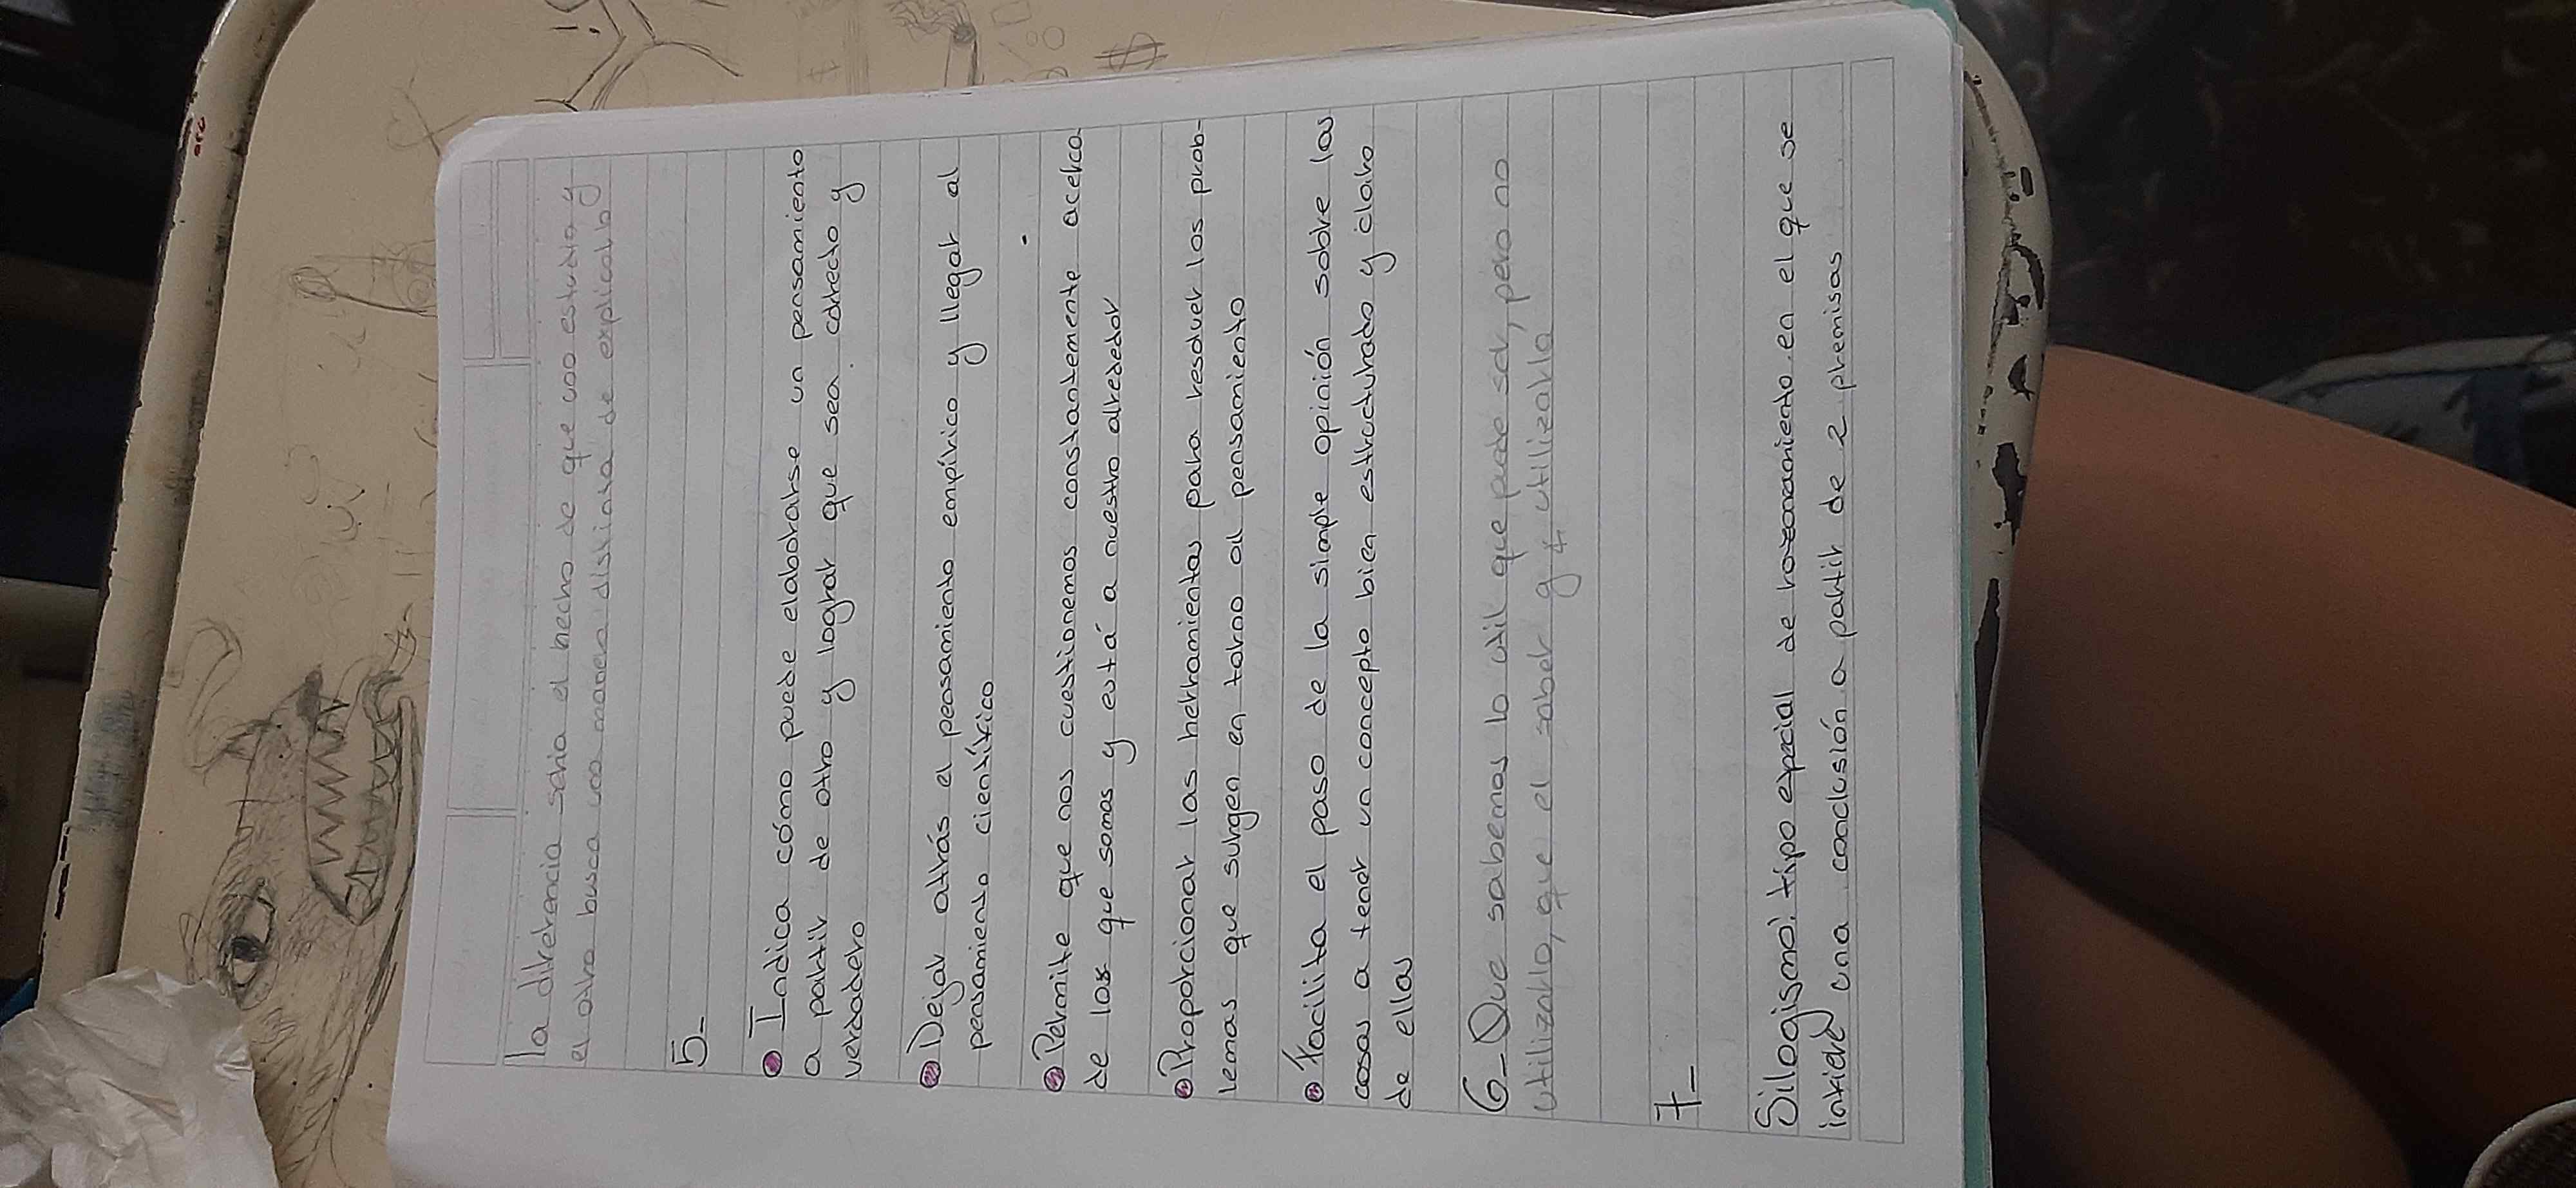 la diferencia seria el hecho de que uno estudia y
el otro busca una manera distinta de explicarlo
5-
Indica cómo puede elaborarse un pensamiento
a partir de otro y lograr que sea correcto y
verdadero
Dejar atrás el pensamiento empírico y llegar al
pensamiento científico
Permite que nos cuestionemos constantemente acerca
de los que somos y está a nuestro alrededor
Proporcionar las herramientas para resolver los prob-
lemas que surgen en torno al pensamiento
Facilita el paso de la simple opinión sobre las
cosas a tener un concepto bien estructurado y claro
de ellas
6- Que sabemos lo util que puede ser, pero no
utilizarlo, que el saber y utilizarlo
7-
Silogismo: tipo especial de razonamiento en el que se
infiere una conclusión a partir de 2 premisas
$